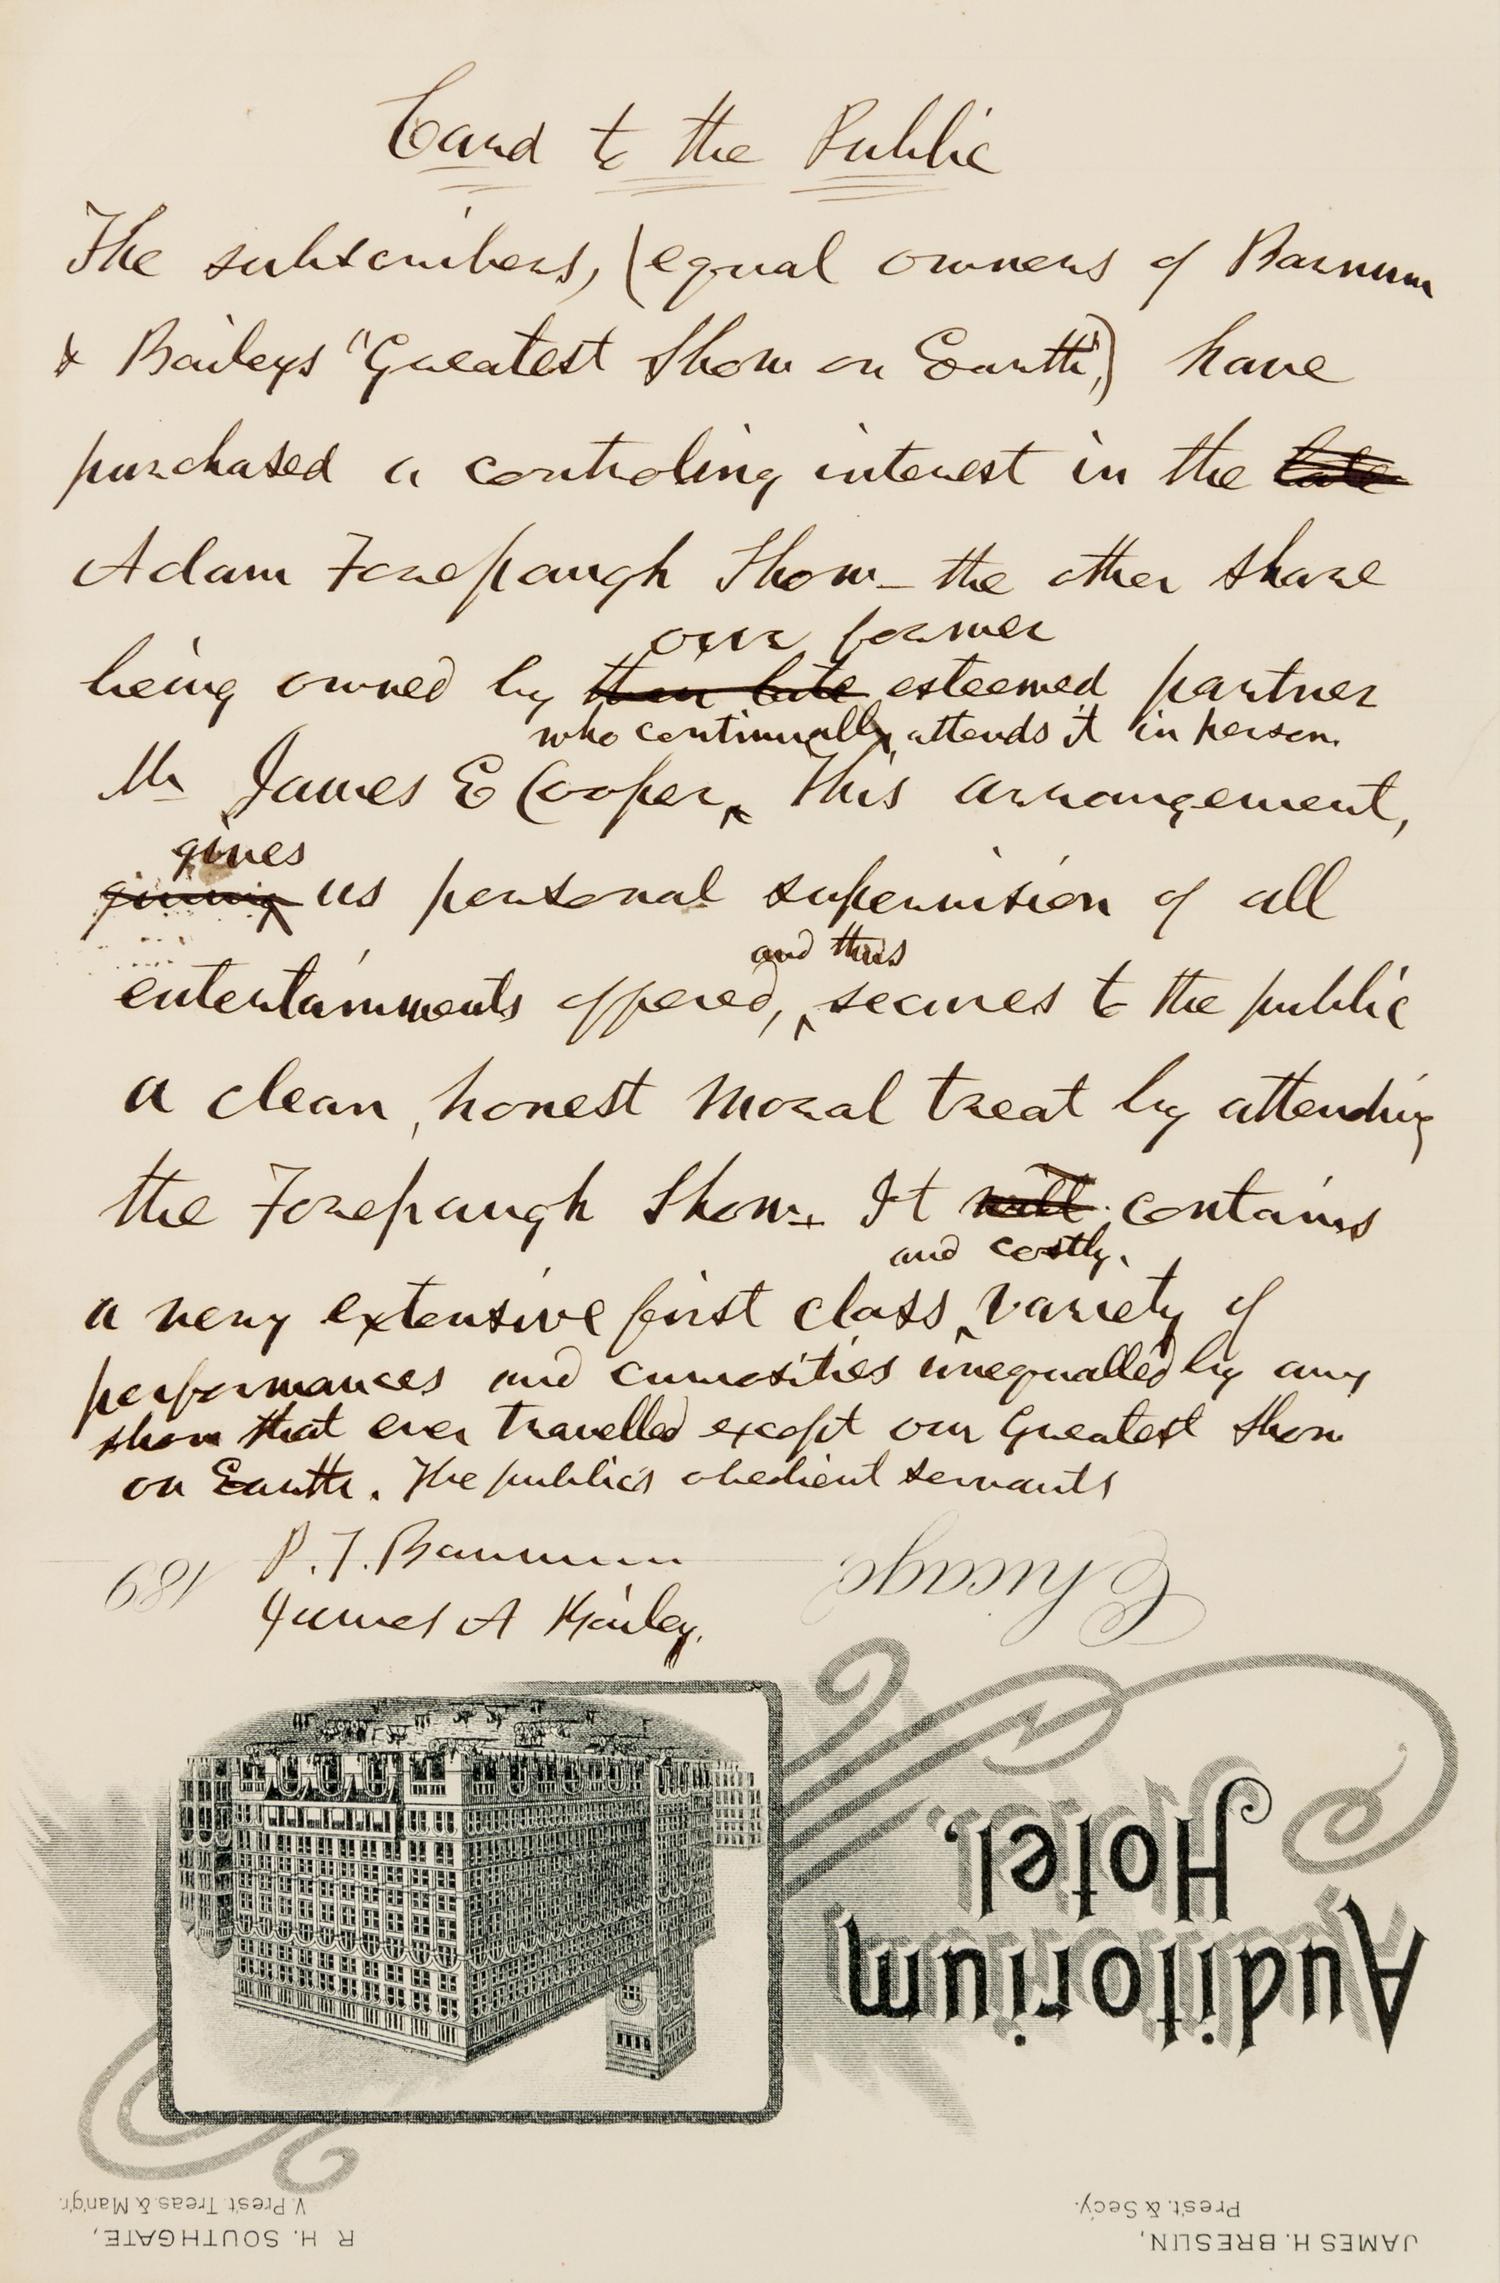 Card to the Public
The subscribers, (equal owners of Barnum
& Baileys "Greatest Show on Earth",) have
purchased a controling interest in the late
Adam Forepaugh Show_ the other share
our former
being owned by their late esteemed partner
who continually attends it in person.
Mr James E Cooper, This arrangement,
gives
giving us personal supervision of all
and thus
entertainments offered, secures to the public
a clean, honest moral treat by attending
the Forepaugh Show. It will contains
and costly
a very extensive first class variety of
performances and curiosities unequalled by any
show that ever travelled except our Greatest Show
on Earth. The public's obedient servants
P. T. Barnum
James A Bailey.
Chicago 189
Auditorium
Hotel.
JAMES H. BRESLIN,
Prest. & Secy.
R H. SOUTHGATE,
V. Prest. Treas. & Mang'r.